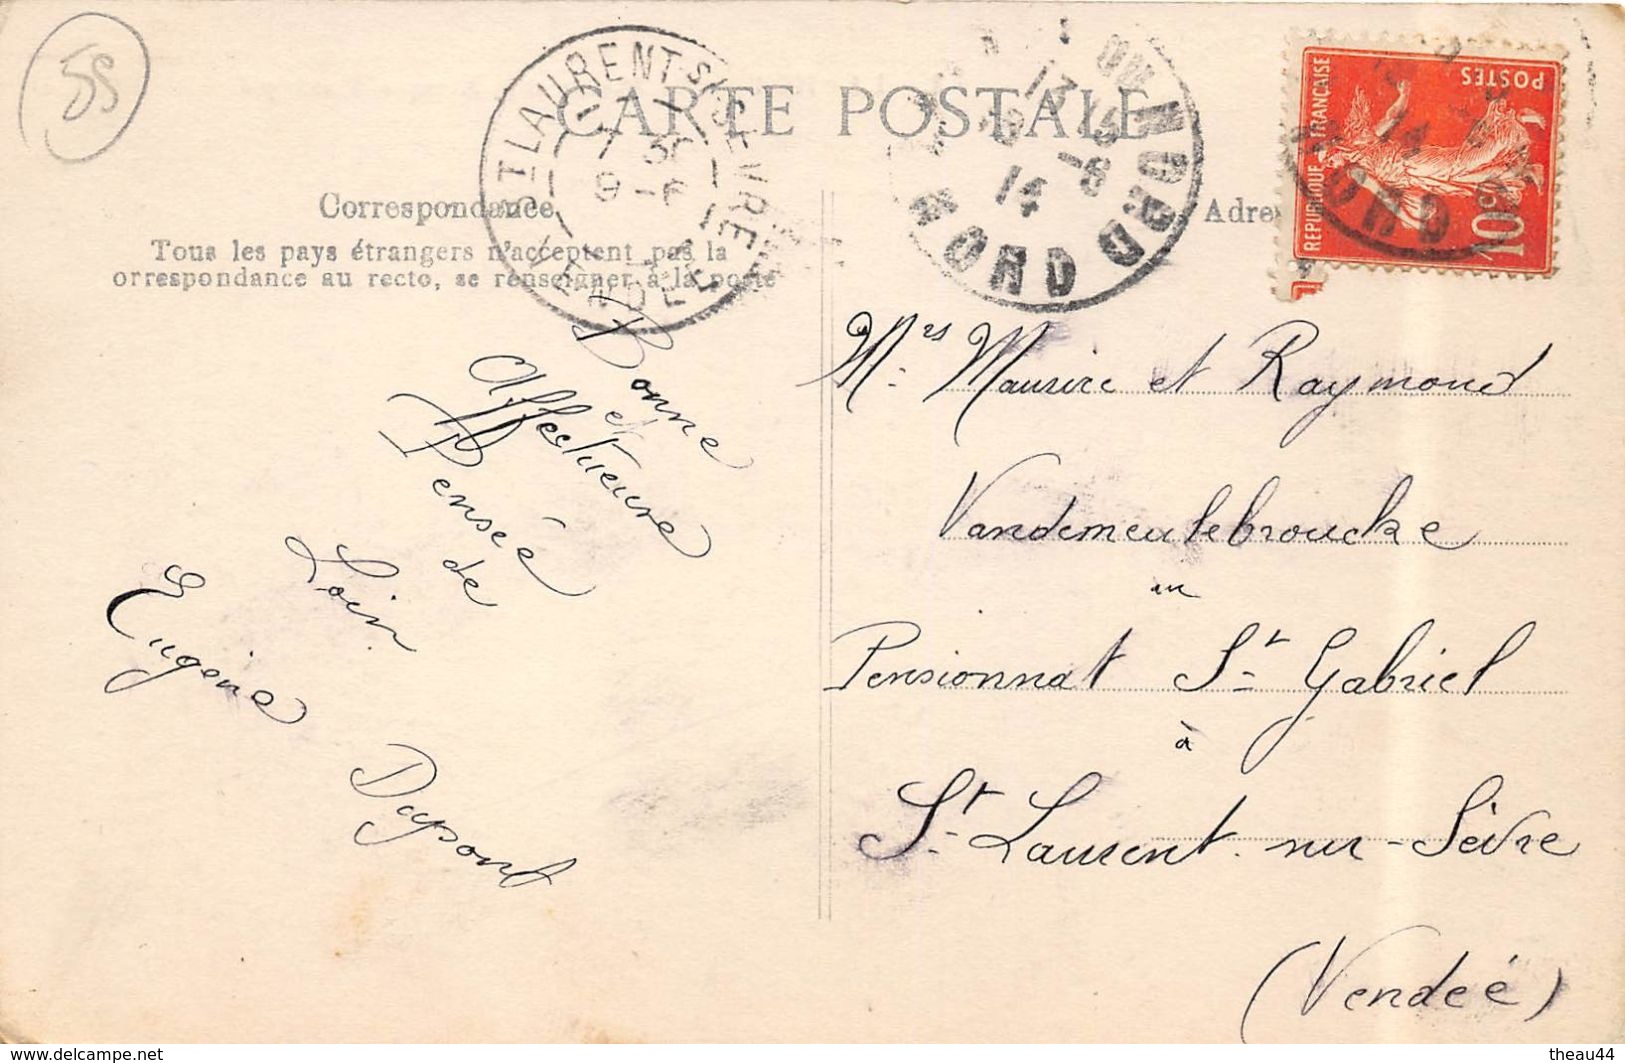 55
CARTE POSTALE
Correspondance
Tous les pays étrangers n'acceptent pas la
orrespondance au recto, se renseigner à la poste
ST LAURENT-S-SEVRE
VENDEE
17 30
9 -6
13
16
14
NORD
Adre
REPUBLIQUE FRANÇAISE
POSTES
10c
Bonne
et
Affectueuse
Pensée
de
Loin
Eugène
Dupont
Mrs Maurice et Raymond
Vandemeulebroucke
au
Pensionnat St Gabriel
à
St Laurent-sur-Sèvre
(Vendée)
www.delcampe.net
theau44